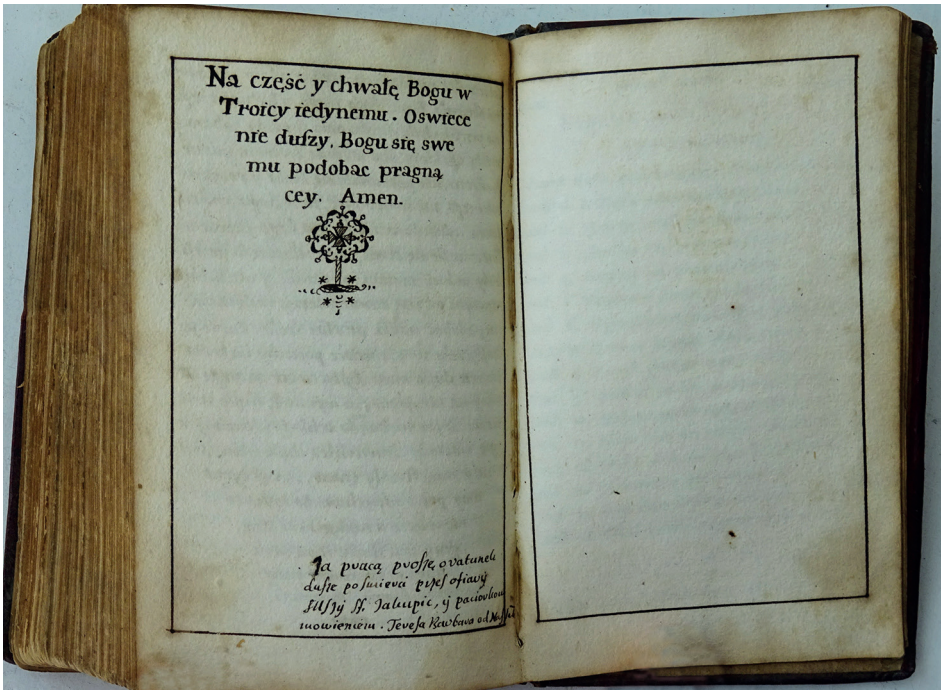 Na część y chwałę Bogu w
Troicy iedynemu. Oswiece
nie duſzy, Bogu się swe
mu podobac pragną
cey. Amen.
Ja pracą proſzę o ratunek
duſze po śmierci przez ofiary
ſſ. y paciorkow
mowieniem. Tereſa Barbara od